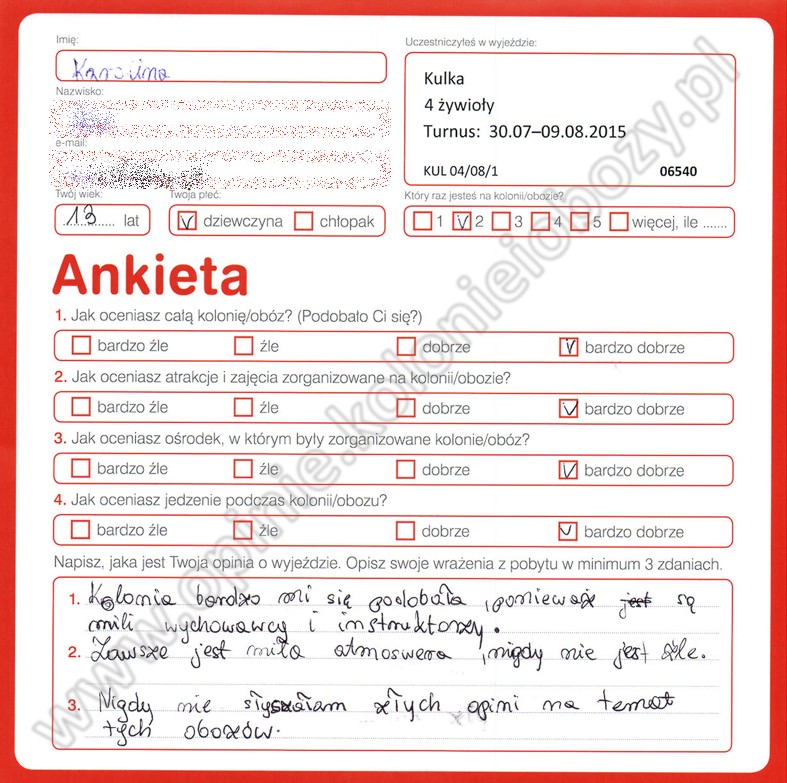 Imię:
Karolina
Uczestniczyłeś w wyjeździe:
Kulka
4 żywioły
Turnus: 30.07–09.08.2015
KUL 04/08/1 06540
Nazwisko:
e-mail:
Twój wiek:
13 lat
Twoja płeć:
dziewczyna chłopak
Który raz jesteś na kolonii/obozie?
1 2 3 4 5 więcej, ile .......
Ankieta
1. Jak oceniasz całą kolonię/obóz? (Podobało Ci się?)
bardzo źle źle dobrze bardzo dobrze
2. Jak oceniasz atrakcje i zajęcia zorganizowane na kolonii/obozie?
bardzo źle źle dobrze bardzo dobrze
3. Jak oceniasz ośrodek, w którym były zorganizowane kolonie/obóz?
bardzo źle źle dobrze bardzo dobrze
4. Jak oceniasz jedzenie podczas kolonii/obozu?
bardzo źle źle dobrze bardzo dobrze
Napisz, jaka jest Twoja opinia o wyjeździe. Opisz swoje wrażenia z pobytu w minimum 3 zdaniach.
1. Kolonia bardzo mi się podobała ,ponieważ jest są
mili wychowawcy i instruktorzy.
2. Zawsze jest miła atmoswera ,nigdy nie jest źle.
3. Nigdy nie słyszałam złych opini na temat
tych obozów.
www.opinie.kolonieiobozy.pl